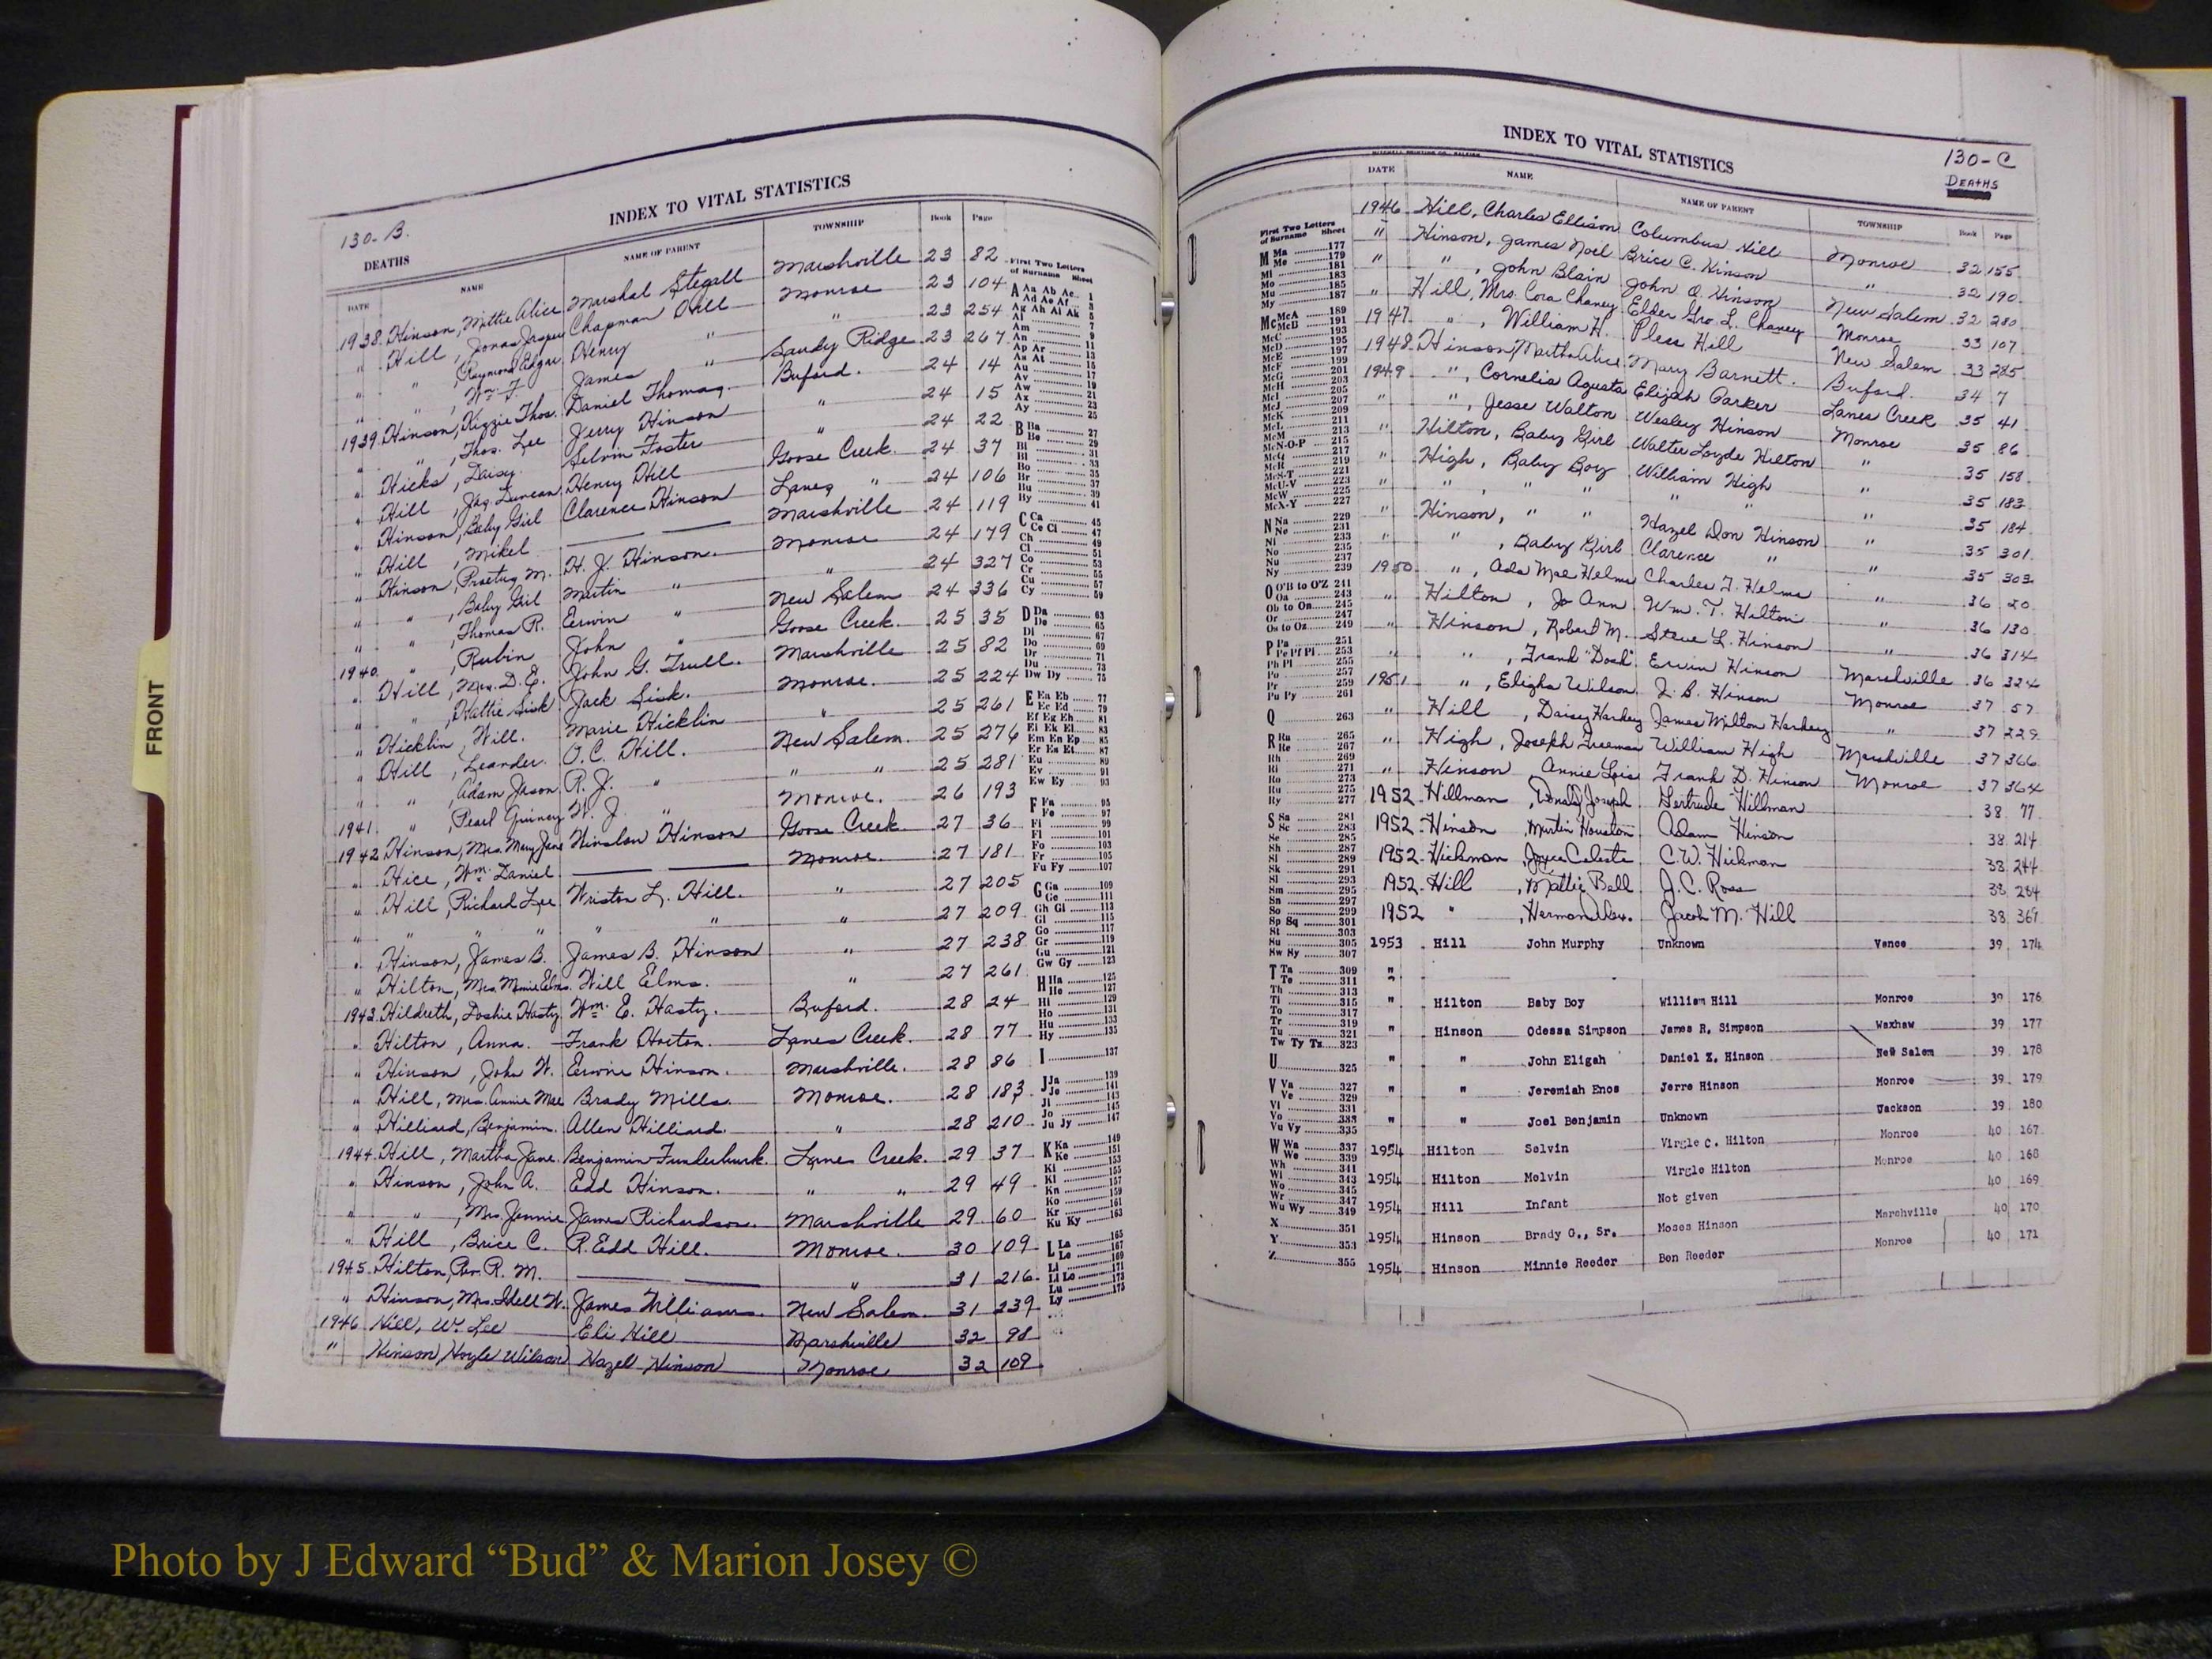 130-B.
INDEX TO VITAL STATISTICS
DEATHS
DATE NAME NAME OF PARENT TOWNSHIP Book Page
1938. Hinson, Mittie Alice Marshal Stegall Marshville 23 82
" Hill, Jonas Jasper Chapman Hill Monroe 23 104
" " , Raymond Edgar Henry " " 23 254
" " , Wm. F. James " Sandy Ridge 23 267
1939. Hinson, Kizzie Thos. Daniel Thomas. Buford. 24 14
" " , Thos. Lee Jerry Hinson " 24 15
" Hicks, Daisy. Selvin Foster " 24 22
" Hill, Jas. Duncan Henry Hill Goose Creek. 24 37
" Hinson, Baby Girl Clarence Hinson Lanes " 24 106
" Hill, Mikel Marshville 24 119
" Hinson, M. H. J. Hinson. Monroe 24 179
" " , Baby Girl Martin " " 24 327
" " , Thomas R. Erwin " New Salem 24 336
1940. " , Rubin John " Goose Creek. 25 35
" Hill, Mrs. D. E. John G. Trull. Marshville 25 82
" " , Hattie Sisk Jack Sisk. Monroe. 25 224
" Hicklin, Will. Marie Hicklin " 25 261
" Hill, Leander. O. C. Hill. New Salem. 25 276
" " , Adam Jason R. J. " " " 25 281
1941. " , Pearl Quincy W. J. " Monroe. 26 193
1942. Hinson, Mrs. Mary Jane Winslow Hinson Goose Creek. 27 36
" Hice, Wm. Daniel Monroe. 27 181
" Hill, Richard Lee Wriston L. Hill. " 27 205
" " " " " " 27 209
" Hinson, James B. James B. Hinson " 27 238
" Hilton, Mrs. Minnie Elms. Will Elms. " 27 261
1943. Hildreth, Doshie Hasty Wm. E. Hasty. Buford. 28 24
" Hilton, Anna. Frank Horton. Lanes Creek. 28 77
" Hinson, John W. Erwine Hinson. Marshville. 28 86
" Hill, Mrs. Annie Mae Brady Mills. Monroe. 28 183
" Hilliard, Benjamin. Allen Hilliard. " 28 210
1944. Hill, Martha Jane. Benjamin Funderburk. Lanes Creek. 29 37
" Hinson, John A. Edd Hinson. " " 29 49
" " , Mrs. Jennie James Richardson. Marshville 29 60
" Hill, Brice C. R. Edd Hill. Monroe. 30 109
1945. Hilton, Rev. R. M. " 31 216
" Hinson, Mrs. Idell W. James Williams. New Salem. 31 239
1946 Hill, Wm. Lee Eli Hill Marshville 32 98
" Hinson, Hoyle Wilson Hazel Hinson Monroe 32 109
First Two Letters
of Surname Sheet
A Aa Ab Ac 1
Ad Ae Af 3
Ag Ah Ai Ak 5
Al 7
Am 9
An 11
Ap Ar 13
As At 15
Au 17
Av 19
Aw 21
Ax 23
Ay 25
B Ba 27
Be 29
Bi 31
Bl 33
Bo 35
Br 37
Bu 39
By 41
C Ca 45
Ce Ci 47
Ch 49
Cl 51
Co 53
Cr 55
Cu 57
Cy 59
D Da 63
De 65
Di 67
Do 69
Dr 71
Du 73
Dw Dy 75
E Ea Eb 77
Ec Ed 79
Ef Eg Eh 81
Ei Ek El 83
Em En Ep 85
Er Es Et 87
Eu 89
Ev 91
Ew Ey 93
F Fa 95
Fe 97
Fi 99
Fl 101
Fo 103
Fr 105
Fu Fy 107
G Ga 109
Ge 111
Gh Gi 113
Gl 115
Go 117
Gr 119
Gu 121
Gw Gy 123
H Ha 125
He 127
Hi 129
Ho 131
Hu 133
Hy 135
I 137
J Ja 139
Je 141
Ji 143
Jo 145
Ju Jy 147
K Ka 149
Ke 151
Ki 153
Kl 155
Kn 157
Ko 159
Kr 161
Ku Ky 163
L La 165
Le 167
Li 169
Ll Lo 171
Lu 173
Ly 175
FRONT
INDEX TO VITAL STATISTICS
130-C
DEATHS
MITCHELL PRINTING CO., RALEIGH
DATE NAME NAME OF PARENT TOWNSHIP Book Page
1946 Hill, Charles Ellison Columbus Hill Monroe 32 155
" Hinson, James Noel Brice C. Hinson " 32 190
" " , John Blain John Q. Hinson New Salem 32 280
" Hill, Mrs. Cora Chaney Elder Geo. L. Chaney Monroe 33 107
1947. " , William H. Pless Hill New Salem 33 285
1948. Hinson, Martha Alice Mary Barnett. Buford. 34 7
1949 " , Cornelia Agusta Elijah Parker Lanes Creek 35 41
" " , Jesse Walton Wesley Hinson Monroe 35 86
" Hilton, Baby Girl Walter Loyde Hilton " 35 158
" High, Baby Boy William High " 35 183
" " , " " " " 35 184
" Hinson, " " Hazel Don Hinson " 35 301
" " , Baby Girl Clarence " " 35 303
1950. " , Ada Mae Helms Charles T. Helms " 36 20
" Hilton, Jo Ann Wm. T. Hilton " 36 130
" Hinson, Robert M. Steve L. Hinson " 36 314
" " , Frank "Dock" Erwin Hinson Marshville 36 324
1951 " , Eligha Wilson J. B. Hinson Monroe 37 57
" Hill, Daisy Harkey James Milton Harkey " 37 229
" High, Joseph Freeman William High Marshville 37 366
" Hinson Annie Lois Frank D. Hinson Monroe 37 364
1952. Hillman, Donald Joseph Gertrude Hillman 38 77
1952- Hinson, Martin Houston Adam Hinson 38 214
1952- Hickman, Joyce Celeste C. W. Hickman 38 244
1952- Hill, Mattie Bell J. C. Ross 38 284
1952 " , Herman Alex. Jacob M. Hill 38 369
1953 Hill John Murphy Unknown Vance 39 174
"
" Hilton Baby Boy William Hill Monroe 39 176
" Hinson Odessa Simpson James R. Simpson Waxhaw 39 177
" " John Eligah Daniel Z. Hinson New Salem 39 178
" " Jeremiah Enos Jerre Hinson Monroe 39 179
" " Joel Benjamin Unknown Jackson 39 180
1954 Hilton Selvin Virgle C. Hilton Monroe 40 167
1954 Hilton Melvin Virgle Hilton Monroe 40 168
1954 Hill Infant Not given 40 169
1954 Hinson Brady G., Sr. Moses Hinson Marshville 40 170
1954 Hinson Minnie Reeder Ben Reeder Monroe 40 171
First Two Letters
of Surname Sheet
M Ma 177
Me 179
Mi 181
Mo 183
Mu 185
My 187
Mc McA 189
McB 191
McC 193
McD 195
McE 197
McF 199
McG 201
McH 203
McI 205
McJ 207
McK 209
McL 211
McM 213
McN-O-P 215
McQ 217
McR 219
McS-T 221
McU-V 223
McW 225
McX-Y 227
N Na 229
Ne 231
Ni 233
No 235
Nu 237
Ny 239
O O'B to O'Z 241
Oa 243
Ob to On 245
Or 247
Os to Oz 249
P Pa 251
Pe Pf Pi 253
Ph Pl 255
Po 257
Pr 259
Pu Py 261
Q 263
R Ra 265
Re 267
Rh 269
Ri 271
Ro 273
Ru 275
Ry 277
S Sa 281
Sc 283
Se 285
Sh 287
Si 289
Sk 291
Sl 293
Sm 295
Sn 297
So 299
Sp Sq 301
St 303
Su 305
Sw Sy 307
T Ta 309
Te 311
Th 313
Ti 315
To 317
Tr 319
Tu 321
Tw Ty Tz 323
U 325
V Va 327
Ve 329
Vi 331
Vo 333
Vu Vy 335
W Wa 337
We 339
Wh 341
Wi 343
Wo 345
Wr 347
Wu Wy 349
X 351
Y 353
Z 355
Photo by J Edward “Bud” & Marion Josey ©